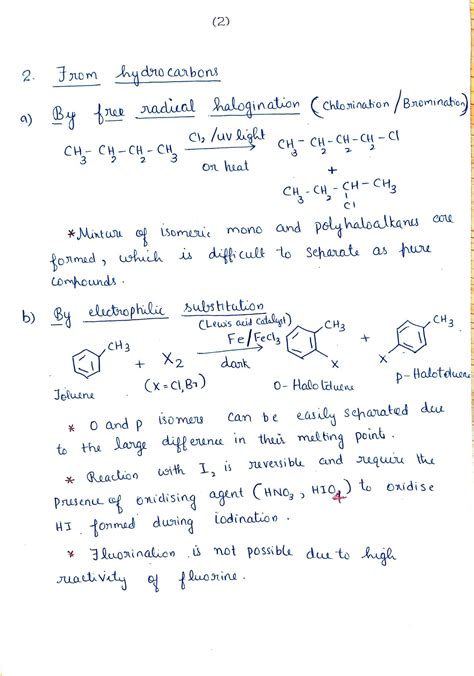 (2)
2. From hydrocarbons
a) By free radical halogination (Chlorination/Bromination)
CH3-CH2-CH2-CH3 Cl2/UV light or heat CH3-CH2-CH2-CH2-Cl
+
CH3-CH2-CH-CH3
Cl
*Mixture of isomeric mono and polyhaloalkanes are
formed, which is difficult to separate as pure
compounds.
b) By electrophilic substitution
(Lewis acid catalyst)
CH3 + X2 Fe/FeCl3 dark CH3 X + CH3 X
Toluene (X=Cl,Br) O-Halotoluene p-Halotoluene
* O and p isomers can be easily separated due
to the large difference in their melting point.
* Reaction with I2 is reversible and require the
presence of oxidising agent (HNO3, HIO4) to oxidise
HI formed during iodination.
* Fluorination is not possible due to high
reactivity of fluorine.